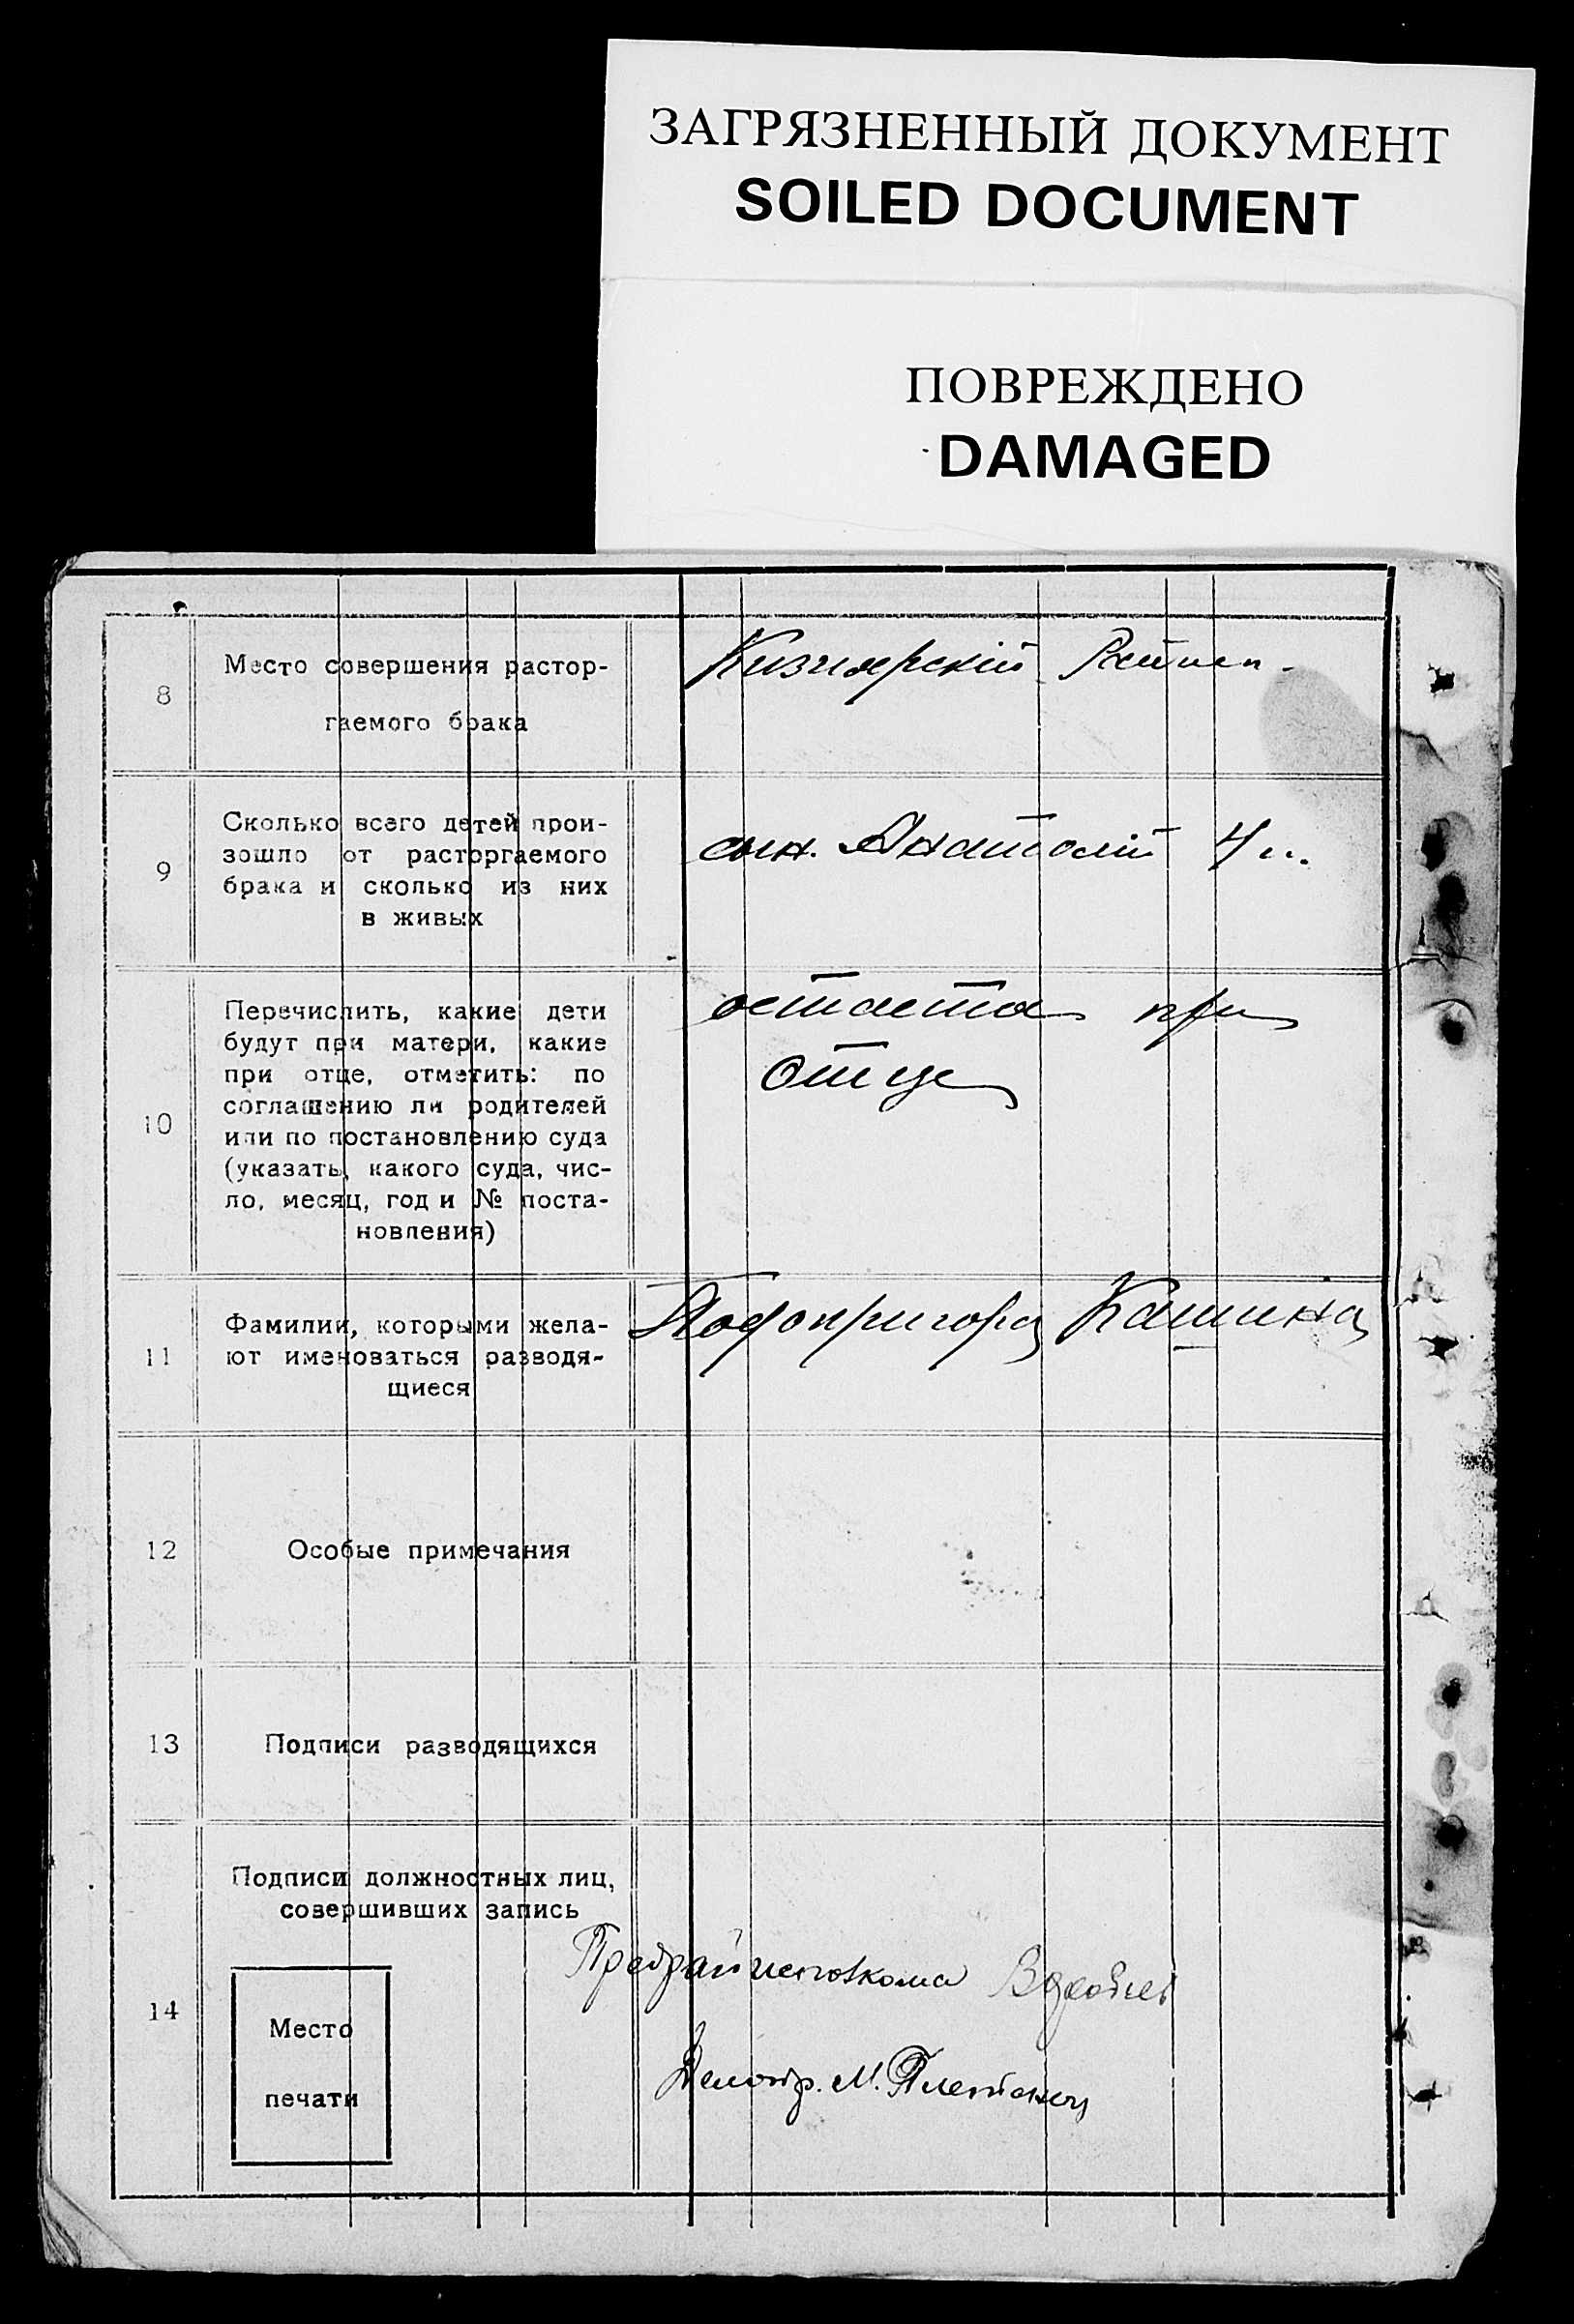 ЗАГРЯЗНЕННЫЙ ДОКУМЕНТ
SOILED DOCUMENT
ПОВРЕЖДЕНО
DAMAGED
8
Место совершения растор-
гаемого брака
Кизлярский Райисп.
9
Сколько всего детей прои-
зошло от расторгаемого
брака и сколько из них
в живых
сын. Анатолий 4
10
Перечислить, какие дети
будут при матери, какие
при отце, отметить: по
соглашению ли родителей
или по постановлению суда
(указать, какого суда, чис-
ло, месяц, год и № поста-
новления)
остается при
отце
11
Фамилии, которыми жела-
ют именоваться разводя-
щиеся
Подопригора Кашина
12
Особые примечания
13
Подписи разводящихся
14
Подписи должностных лиц,
совершивших запись
Предрайисполкома
Делопр. М.
Место
печати